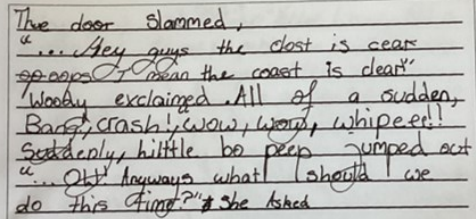 The door slammed,
"... Hey guys the clost is cear
opoops I mean the coast is clear"
Woody exclaimed. All of a sudden,
Bang!, crash!, wow, wow, whipeee!!
Suddenly, little bo peep jumped out
"... Oh! Anyways what should we
do this time?" she Asked